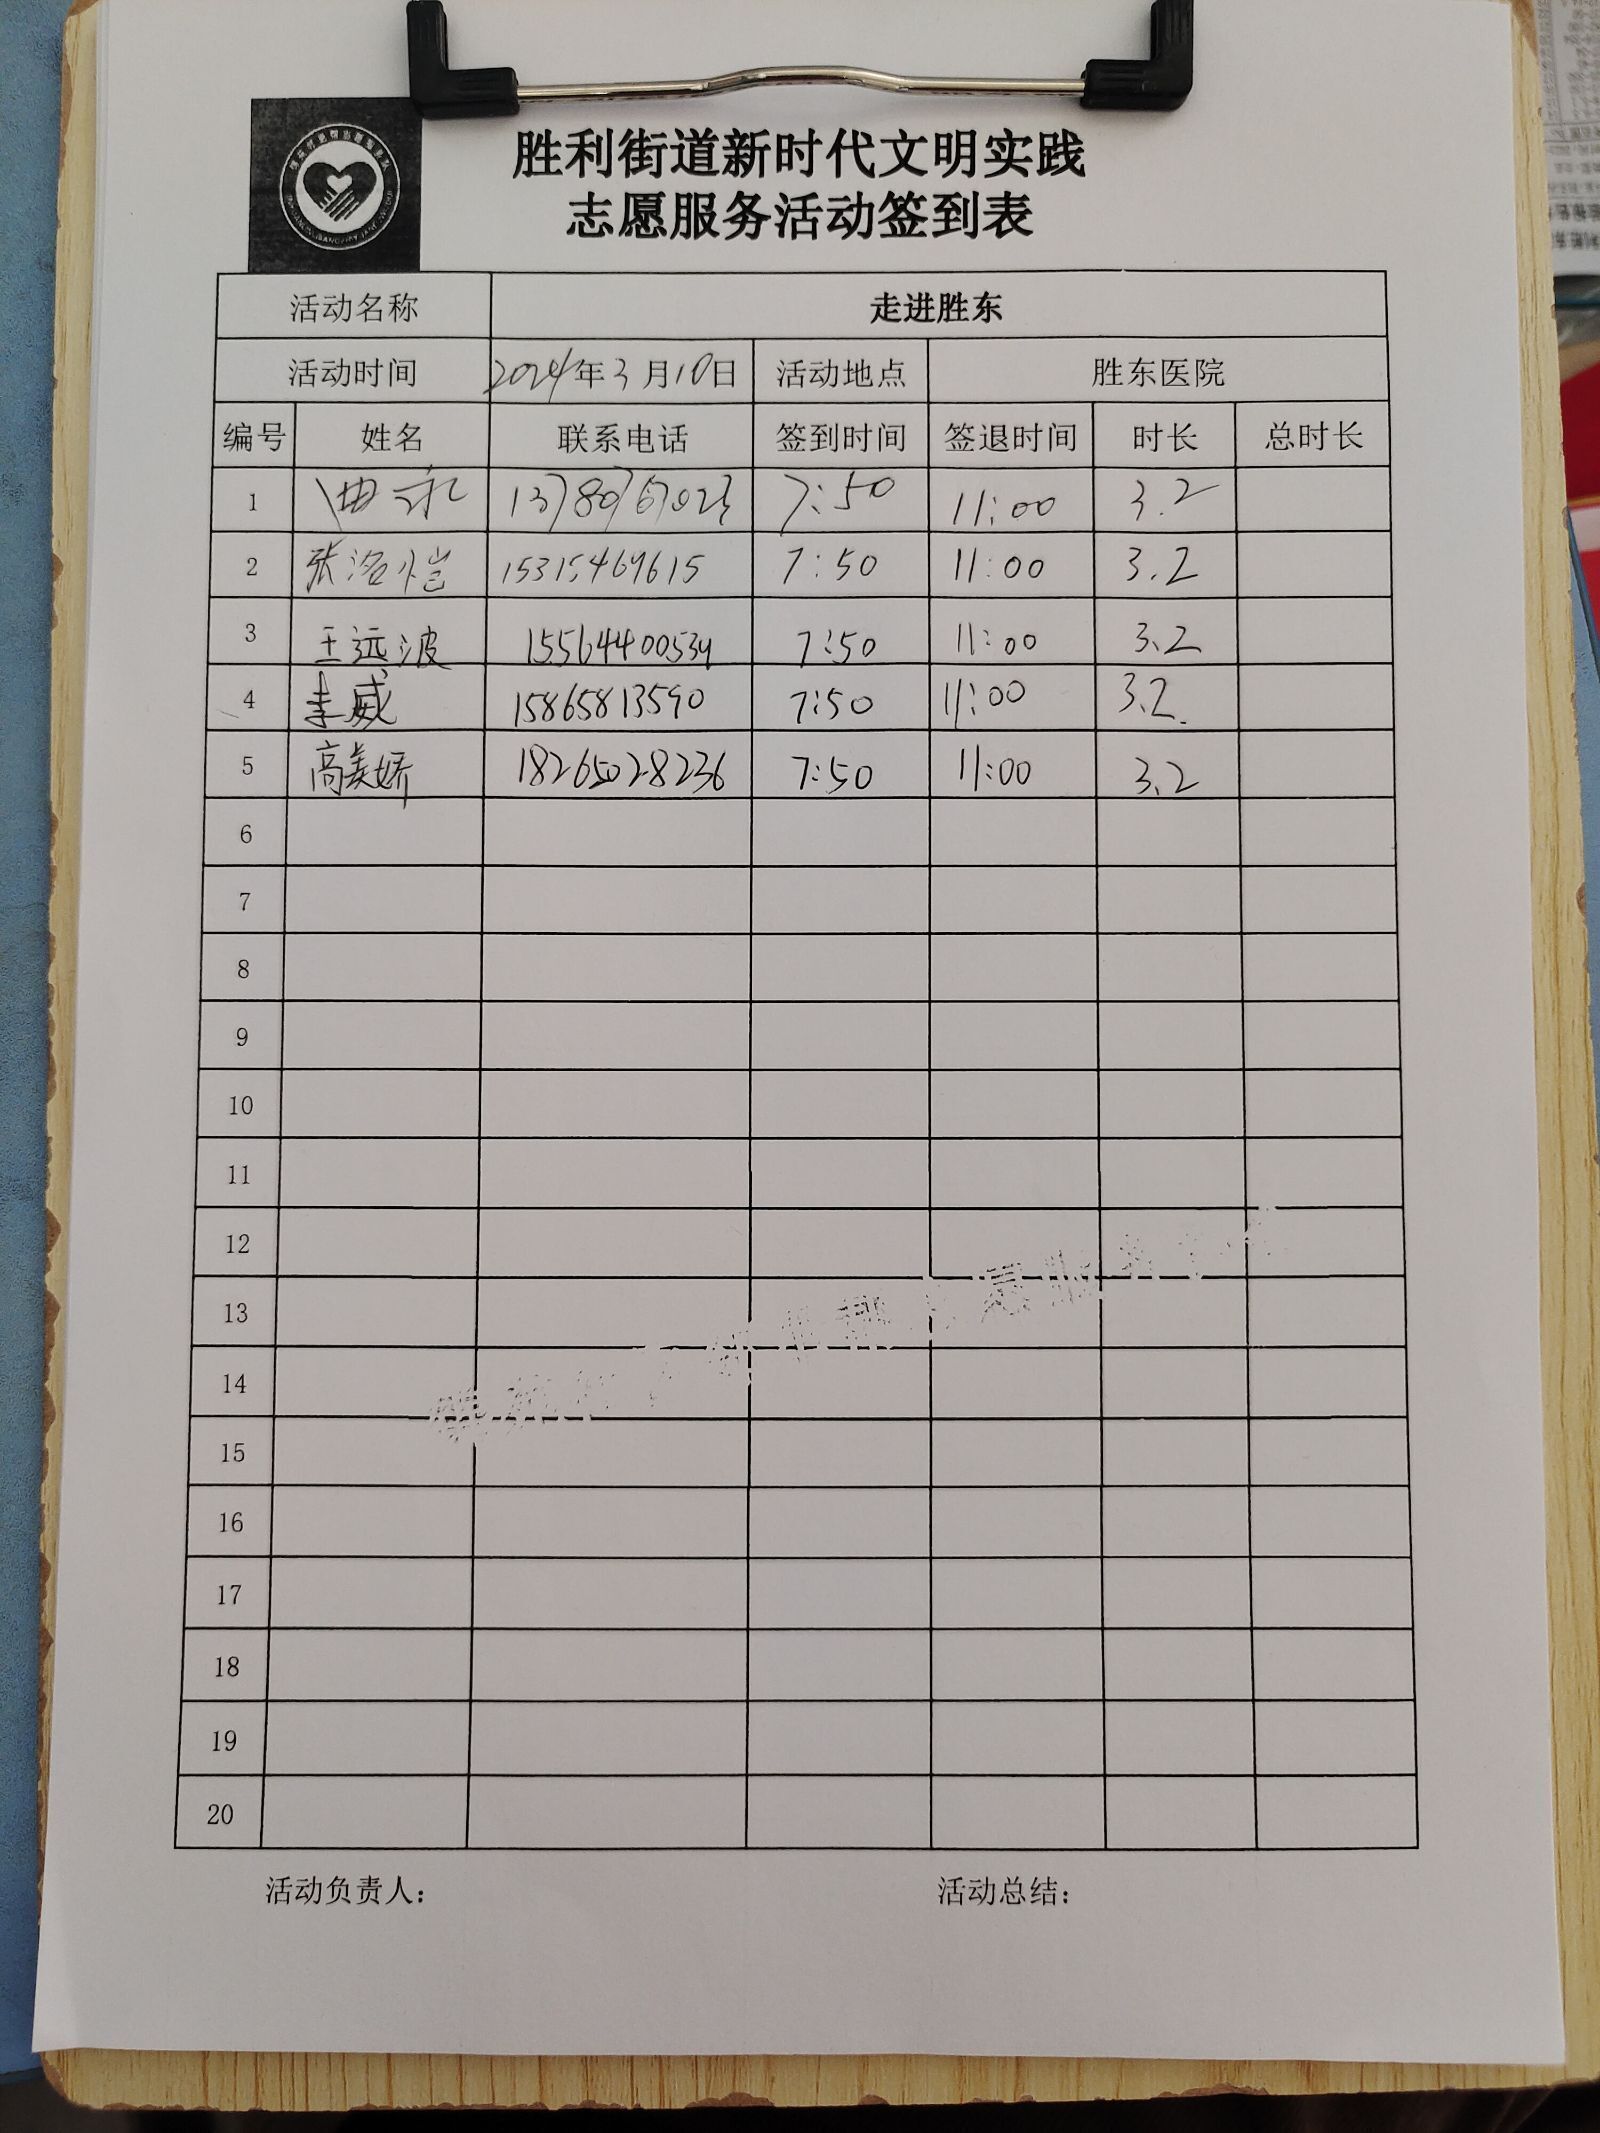 胜利街道新时代文明实践
志愿服务活动签到表
活动名称 走进胜东
活动时间 2024年3月10日 活动地点 胜东医院
编号 姓名 联系电话 签到时间 签退时间 时长 总时长
1 7:50 11:00 3.2
2 张洛恺 15315469615 7:50 11:00 3.2
3 王远波 15564400534 7:50 11:00 3.2
4 李威 15865813590 7:50 11:00 3.2
5 高美娇 18265028236 7:50 11:00 3.2
6
7
8
9
10
11
12
13
14
15
16
17
18
19
20
活动负责人： 活动总结：